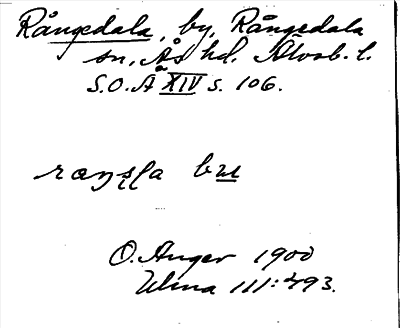 Rångedala, by, Rångedala
sn, Ås hd. Älvsb. l.
S.O.Ä XIV s. 106.
bu
O. Anger 1900
Ulma 111:493.